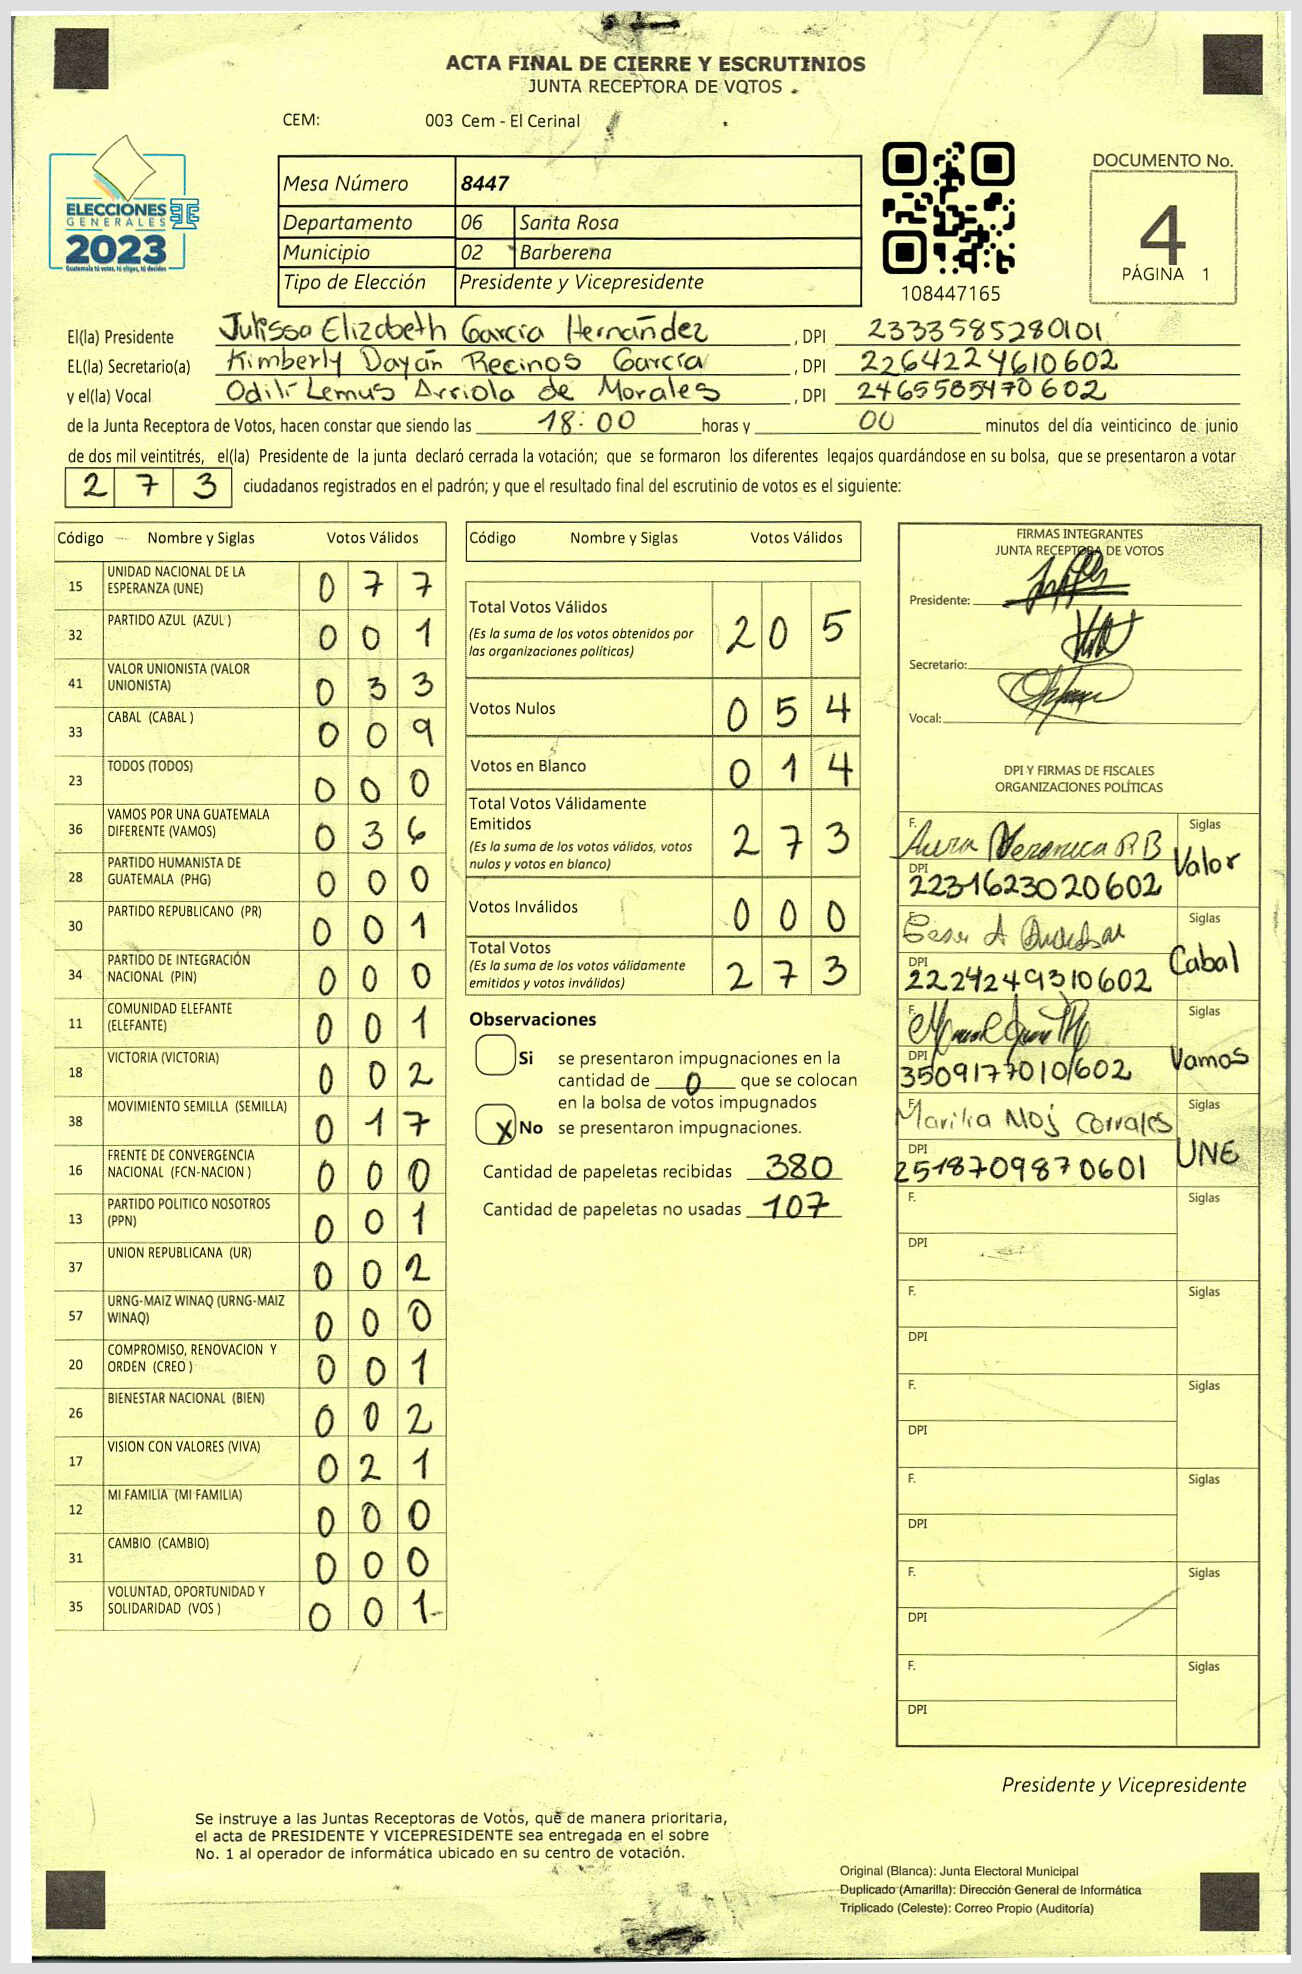 ACTA FINAL DE CIERRE Y ESCRUTINIOS
JUNTA RECEPTORA DE VOTOS
CEM: 003 Cem - El Cerinal
ELECCIONES
GENERALES
2023
Guatemala tú votas, tú eliges, tú decides
Mesa Número 8447
Departamento 06 Santa Rosa
Municipio 02 Barberena
Tipo de Elección Presidente y Vicepresidente
108447165
DOCUMENTO No.
4
PÁGINA 1
El(la) Presidente Julissa Elizabeth García Hernández, DPI 2333585280101
EL(la) Secretario(a) Kimberly Dayán Recinos García, DPI 2264224610602
y el(la) Vocal Odili Lemus Arriola de Morales, DPI 2465585470602
de la Junta Receptora de Votos, hacen constar que siendo las 18:00 horas y 00 minutos del día veinticinco de junio
de dos mil veintitrés, el(la) Presidente de la junta declaró cerrada la votación; que se formaron los diferentes legajos quardándose en su bolsa, que se presentaron a votar
273 ciudadanos registrados en el padrón; y que el resultado final del escrutinio de votos es el siguiente:
Código Nombre y Siglas Votos Válidos
15 UNIDAD NACIONAL DE LA ESPERANZA (UNE) 077
32 PARTIDO AZUL (AZUL ) 001
41 VALOR UNIONISTA (VALOR UNIONISTA) 033
33 CABAL (CABAL ) 009
23 TODOS (TODOS) 000
36 VAMOS POR UNA GUATEMALA DIFERENTE (VAMOS) 036
28 PARTIDO HUMANISTA DE GUATEMALA (PHG) 000
30 PARTIDO REPUBLICANO (PR) 001
34 PARTIDO DE INTEGRACIÓN NACIONAL (PIN) 000
11 COMUNIDAD ELEFANTE (ELEFANTE) 001
18 VICTORIA (VICTORIA) 002
38 MOVIMIENTO SEMILLA (SEMILLA) 017
16 FRENTE DE CONVERGENCIA NACIONAL (FCN-NACION ) 000
13 PARTIDO POLITICO NOSOTROS (PPN) 001
37 UNION REPUBLICANA (UR) 002
57 URNG-MAIZ WINAQ (URNG-MAIZ WINAQ) 000
20 COMPROMISO, RENOVACION Y ORDEN (CREO ) 001
26 BIENESTAR NACIONAL (BIEN) 002
17 VISION CON VALORES (VIVA) 021
12 MI FAMILIA (MI FAMILIA) 000
31 CAMBIO (CAMBIO) 000
35 VOLUNTAD, OPORTUNIDAD Y SOLIDARIDAD (VOS ) 001
Código Nombre y Siglas Votos Válidos
Total Votos Válidos 205
(Es la suma de los votos obtenidos por
las organizaciones políticas)
Votos Nulos 054
Votos en Blanco 014
Total Votos Válidamente
Emitidos 273
(Es la suma de los votos válidos, votos
nulos y votos en blanco)
Votos Inválidos 000
Total Votos 273
(Es la suma de los votos válidamente
emitidos y votos inválidos)
Observaciones
Si se presentaron impugnaciones en la
cantidad de 0 que se colocan
en la bolsa de votos impugnados
X No se presentaron impugnaciones.
Cantidad de papeletas recibidas 380
Cantidad de papeletas no usadas 107
FIRMAS INTEGRANTES
JUNTA RECEPTORA DE VOTOS
Presidente:
Secretario:
Vocal:
DPI Y FIRMAS DE FISCALES
ORGANIZACIONES POLÍTICAS
F. Aura Veronica R B Siglas Valor
DPI 2231623020602
F. Siglas Cabal
DPI 2224249310602
F. Siglas Vamos
DPI 3509177010602
F. Marilia Noj Corrales Siglas UNE
DPI 2518709870601
F. Siglas
DPI
F. Siglas
DPI
F. Siglas
DPI
F. Siglas
DPI
F. Siglas
DPI
F. Siglas
DPI
Presidente y Vicepresidente
Se instruye a las Juntas Receptoras de Votos, que de manera prioritaria,
el acta de PRESIDENTE Y VICEPRESIDENTE sea entregada en el sobre
No. 1 al operador de informática ubicado en su centro de votación.
Original (Blanca): Junta Electoral Municipal
Duplicado (Amarilla): Dirección General de Informática
Triplicado (Celeste): Correo Propio (Auditoría)